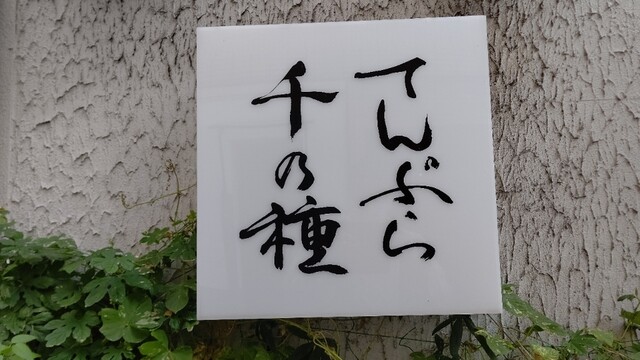 てんぷら
千乃種